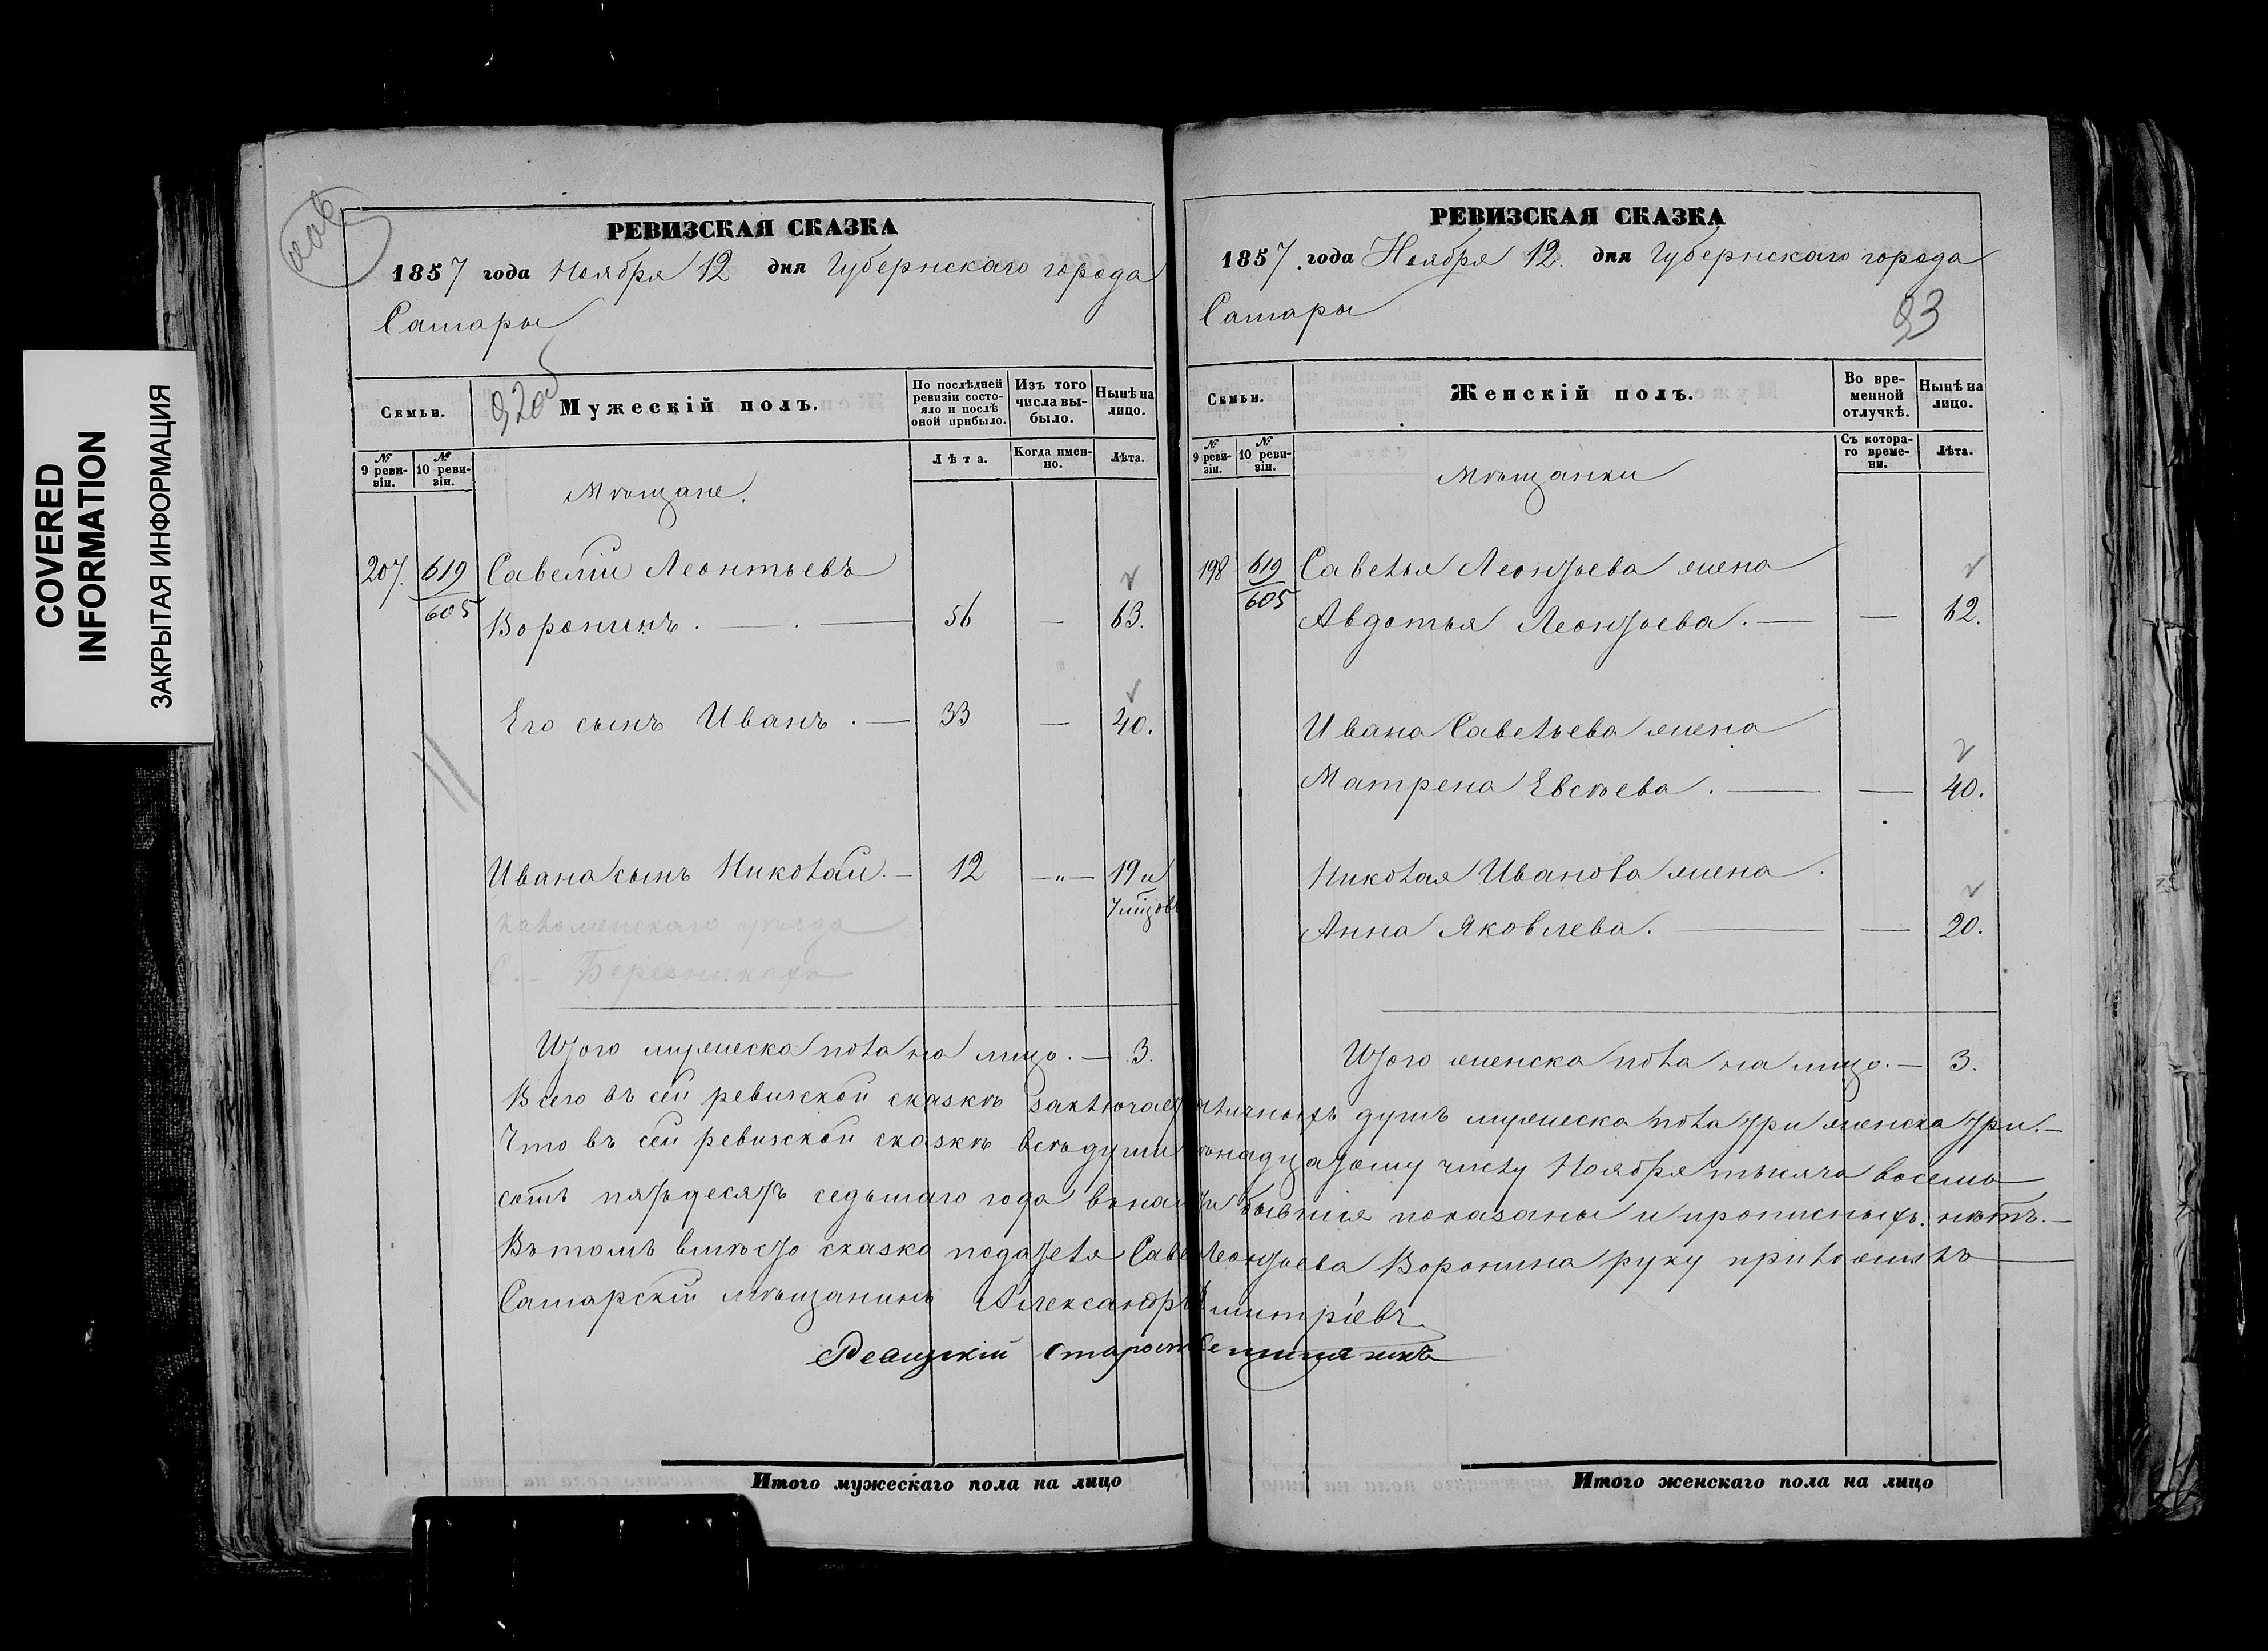 COVERED
INFORMATION
ЗАКРЫТАЯ ИНФОРМАЦИЯ
РЕВИЗСКАЯ СКАЗКА
1857 года Ноября 12 дня Губернскаго города
Самары
Семьи.
Мужескій полъ.
По послѣдней ревизіи состояло и послѣ оной прибыло.
Изъ того числа выбыло.
Нынѣ на лицо.
№ 9 ревизіи.
№ 10 ревизіи.
Лѣта.
Когда именно.
Лѣта.
Мѣщане.
207. 619 Савелій Леонтьевъ
605 Воронинъ. — 56 — 63.
Его сынъ Иванъ. — 33 — 40.
Ивана сынъ Николай. — 12 —"— 19 и
уѣзда
С. — Березникахъ
Итого мужеска пола на лицо. — 3.
РЕВИЗСКАЯ СКАЗКА
1857. года Ноября 12. дня Губернскаго города
Самары
93
Семьи.
Женскій полъ.
Во временной отлучкѣ.
Нынѣ на лицо.
№ 9 ревизіи.
№ 10 ревизіи.
Съ котораго времени.
Лѣта.
Мѣщанки
198 619 Савелья Леонтьева жена
605 Авдотья Леонтьева. — — 62.
Ивана Савельева жена
Матрена Евсѣева. — — 40.
Николая Иванова жена
Анна Яковлева. — — 20.
Итого женска пола на лицо. — 3.
Всего въ сей ревизской сказкѣ заключает наличныхъ душъ мужеска пола три женска три. —
Что въ сей ревизской сказкѣ всѣ души надцатому числу Ноября тысяча восемь
сотъ пятьдесятъ седьмаго года бывшія показаны и прописныхъ нѣтъ. —
Въ томъ вмѣсто сказко подателя Саве Леонтьева Воронина руку приложилъ
Самарскій мѣщанинъ Александръ митріевъ.
старост
Итого мужескаго пола на лицо
Итого женскаго пола на лицо